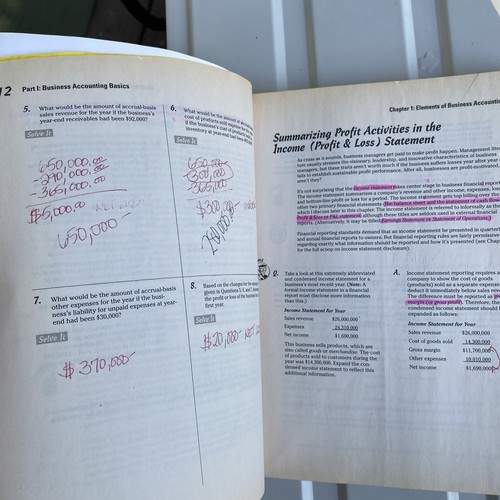 12 Part I: Business Accounting Basics
5. What would be the amount of accrual-basis
sales revenue for the year if the business's
year-end receivables had been $92,000?
Solve It
650,000.00
- 290,000.00
- 365,000.00
$5,000.00 NET
650,000
6. What would be the amount of
cost of products sold expense for the
if the business's cost of products
inventory at year-end had been
Solve It
365,000
$300,000
7. What would be the amount of accrual-basis
other expenses for the year if the busi-
ness's liability for unpaid expenses at year-
end had been $30,000?
Solve It
$ 370,000
8. Based on the changes for the
given in Questions 5, 6, and 7,
the profit or loss of the business for
first year.
Solve It
$20,000 NET
Chapter 1: Elements of Business Accoun
Summarizing Profit Activities in the
Income (Profit & Loss) Statement
As crass as it sounds, business managers get paid to make profit happen. Management liter
ture usually stresses the visionary, leadership, and innovative characteristics of business
managers, but these traits aren't worth much if the business suffers losses year after year
fails to establish sustainable profit performance. After all, businesses are profit-motivated,
aren't they?
It's not surprising that the income statement takes center stage in business financial reports.
The income statement summarizes a company's revenue and other income, expenses, losses,
and bottom-line profit or loss for a period. The income statement gets top billing over the
other two primary financial statements (the balance sheet and the statement of cash flows),
which I discuss later in this chapter. The income statement is referred to informally as the
Profit & Loss or P&L statement, although these titles are seldom used in external financial
reports. (Alternatively, it may be titled Earnings Statement or Statement of Operations.)
Financial reporting standards demand that an income statement be presented in quarterly
and annual financial reports to owners. But financial reporting rules are fairly permissive
regarding exactly what information should be reported and how it's presented (see Chapter
for the full scoop on income statement disclosure).
Q. Take a look at this extremely abbreviated
and condensed income statement for a
business's most recent year. (Note: A
formal income statement in a financial
report must disclose more information
than this.)
Income Statement for Year
Sales revenue $26,000,000
Expenses 24,310,000
Net income $1,690,000
This business sells products, which are
also called goods or merchandise. The cost
of products sold to customers during the
year was $14,300,000. Expand the con-
densed income statement to reflect this
additional information.
A. Income statement reporting requires a
company to show the cost of goods
(products) sold as a separate expense
deduct it immediately below sales revenue
The difference must be reported as gross
margin (or gross profit). Therefore, the
condensed income statement should be
expanded as follows:
Income Statement for Year
Sales revenue $26,000,000
Cost of goods sold 14,300,000
Gross margin $11,700,000
Other expenses 10,010,000
Net income $1,690,000